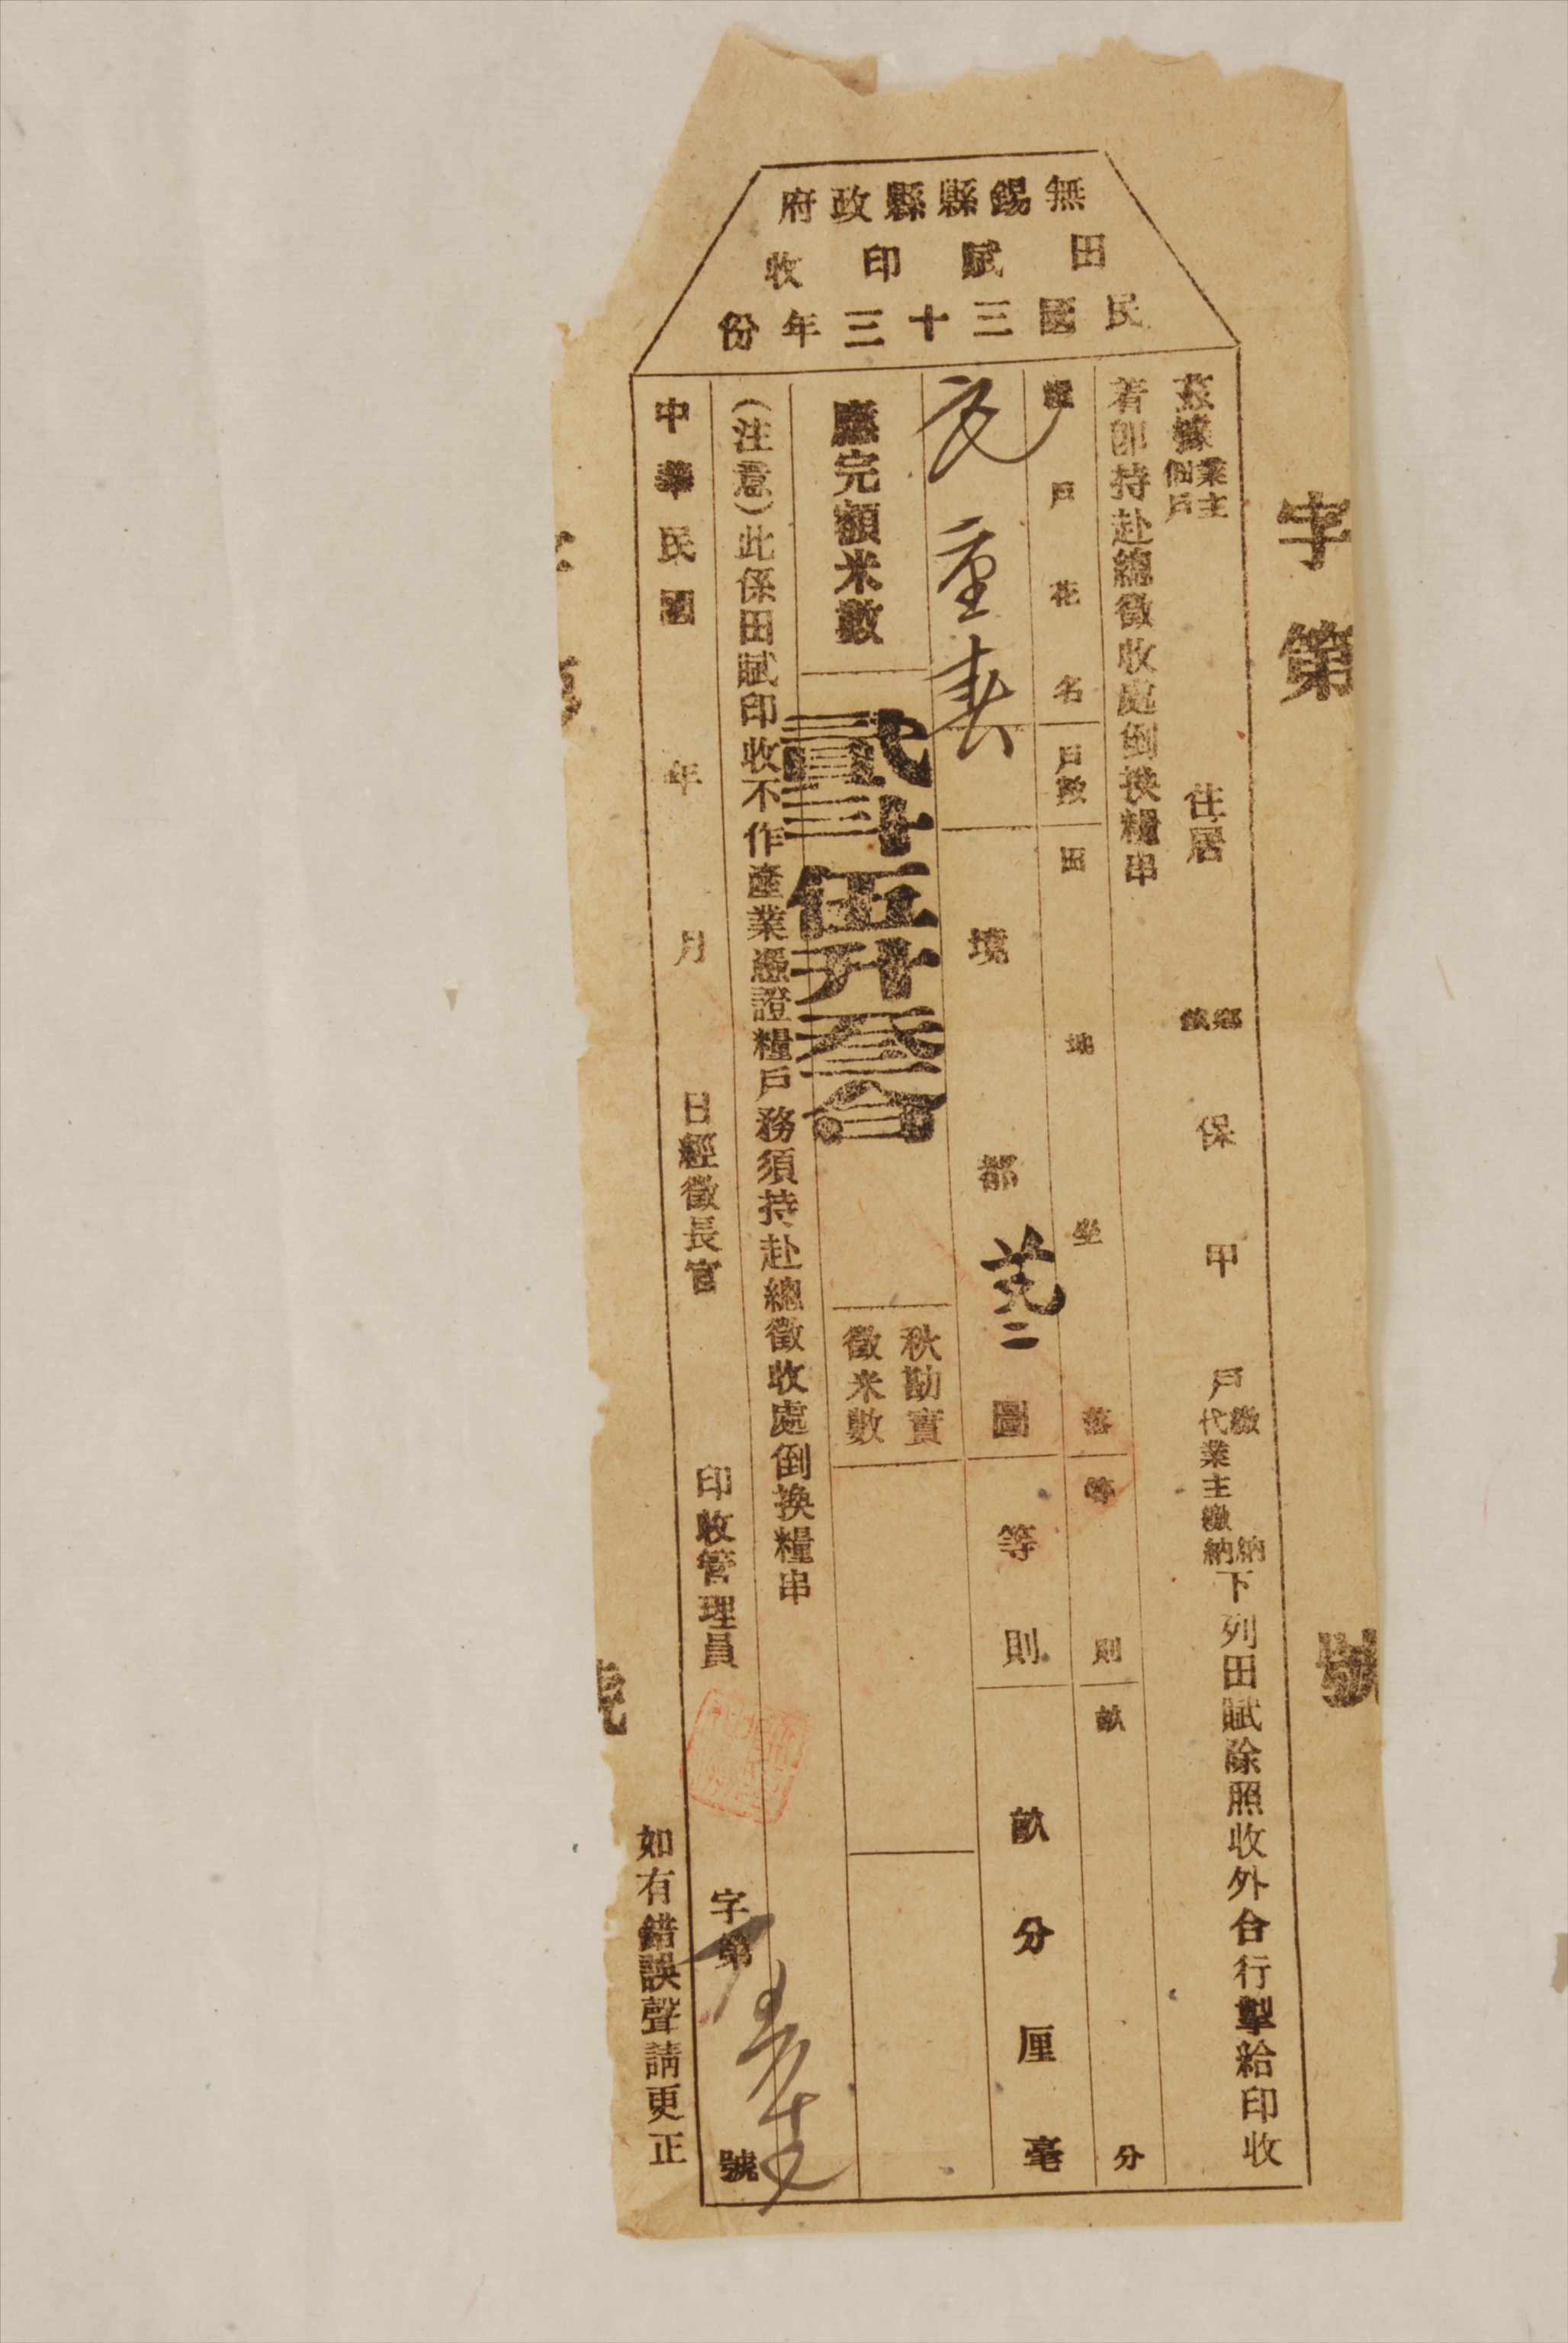 無錫縣縣政府
田賦印收
民國三十三年份
字第 號
茲據業主佃戶 住居 鄉鎮 保 甲 戶繳納代業主繳納下列田賦除照收外合行掣給印收
着即持赴總徵收處倒換糧串
糧戶花名 戶數 田地坐落 等則 畝分
重春 境 都 二 圖 等則 畝分厘毫
應完額米數 貳斗伍升叁合 秋勘實徵米數
(注意)此係田賦印收不作產業憑證糧戶務須持赴總徵收處倒換糧串
中華民國 年 月 日經徵長官 印收管理員 字第 號
如有錯誤聲請更正